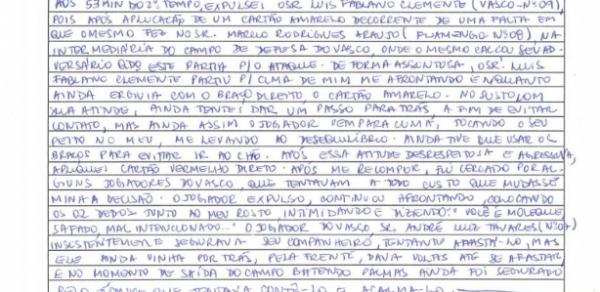 AOS 53 MIN DO 2º TEMPO, EXPULSEI O SR. LUIS FABIANO CLEMENTE (VASCO - Nº 09),
POIS APÓS APLICAÇÃO DE UM CARTÃO AMARELO DECORRENTE DE UMA FALTA EM
QUE O MESMO FEZ NO SR. MARCIO RODRIGUES ARAUJO (FLAMENGO Nº 08), NA
INTERMEDIÁRIA DO CAMPO DE DEFESA DO VASCO, ONDE O MESMO CALÇOU SEU AD-
VERSÁRIO QDO ESTE PARTIA P/O ATAQUE. DE FORMA ACINTOSA, O SR. LUIS
FABIANO CLEMENTE PARTIU P/CIMA DE MIM ME AFRONTANDO ENQUANTO
AINDA ERGUIA COM O BRAÇO DIREITO O CARTÃO AMARELO. NO SUSTO COM
SUA ATITUDE, AINDA TENTEI DAR UM PASSO PARA TRÁS, A FIM DE EVITAR
CONTATO, MAS AINDA ASSIM O JOGADOR VEM PARA CIMA, TOCANDO O SEU
PEITO NO MEU, ME LEVANDO AO DESEQUILÍBRIO. AINDA TIVE QUE USAR OS
BRAÇOS PARA EVITAR IR AO CHÃO. APÓS ESSA ATITUDE DESRESPEITOSA E AGRESSIVA,
APLIQUEI CARTÃO VERMELHO DIRETO. APÓS ME RECOMPOR, FUI CERCADO POR AL-
GUNS JOGADORES DO VASCO, QUE TENTAVAM A TODO CUSTO QUE MUDASSE
MINHA DECISÃO. O JOGADOR EXPULSO, CONTINUOU AFRONTANDO, COLOCANDO
OS 02 DEDOS JUNTO AO MEU ROSTO, INTIMIDANDO E DIZENDO: "VOCÊ É MOLEQUE,
SAFADO, MAL INTENCIONADO..." O JOGADOR DO VASCO, SR. ANDRÉ LUIZ TAVARES (Nº 07)
INSISTENTEMENTE SEGURAVA SEU COMPANHEIRO, TENTANTO AFASTÁ-LO, MAS
ELE AINDA VINHA POR TRÁS, PELA FRENTE, DAVA VOLTAS ATÉ SE AFASTAR,
E NO MOMENTO DE SAÍDA DO CAMPO BATENDO PALMAS AINDA FOI SEGURADO
PELO TÉCNICO QUE TENTAVA CONTÊ-LO E ACALMÁ-LO.